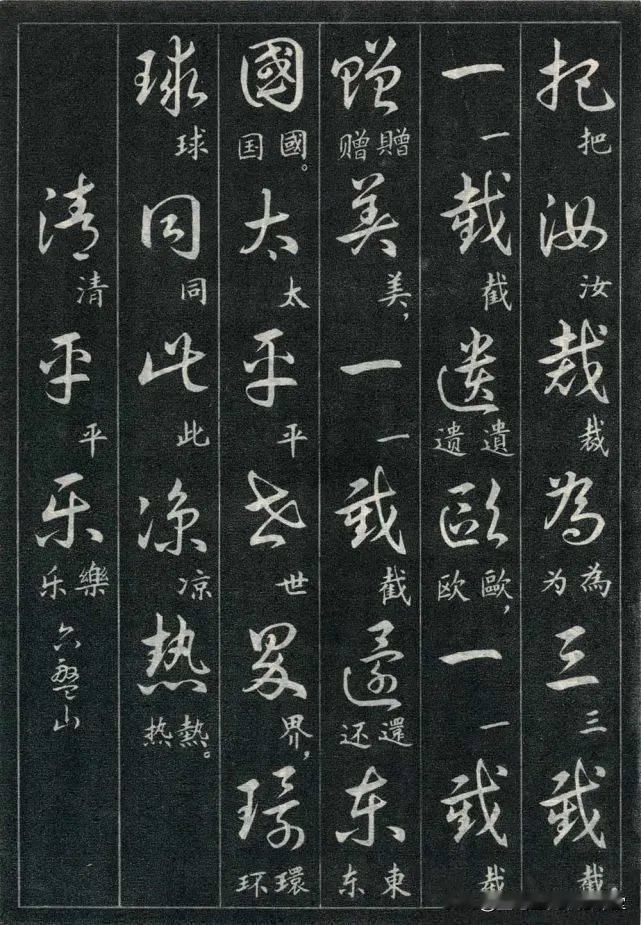 把汝裁為三截
把汝裁為为三截
一截遺歐一截
一截遺遗歐，欧一截
贈美一截還东
贈赠美，一截還还東东
國太平世界環
國。国太平世界，環环
球同此凉热
球同此凉熱。热
清平乐
清平樂乐
六盤山